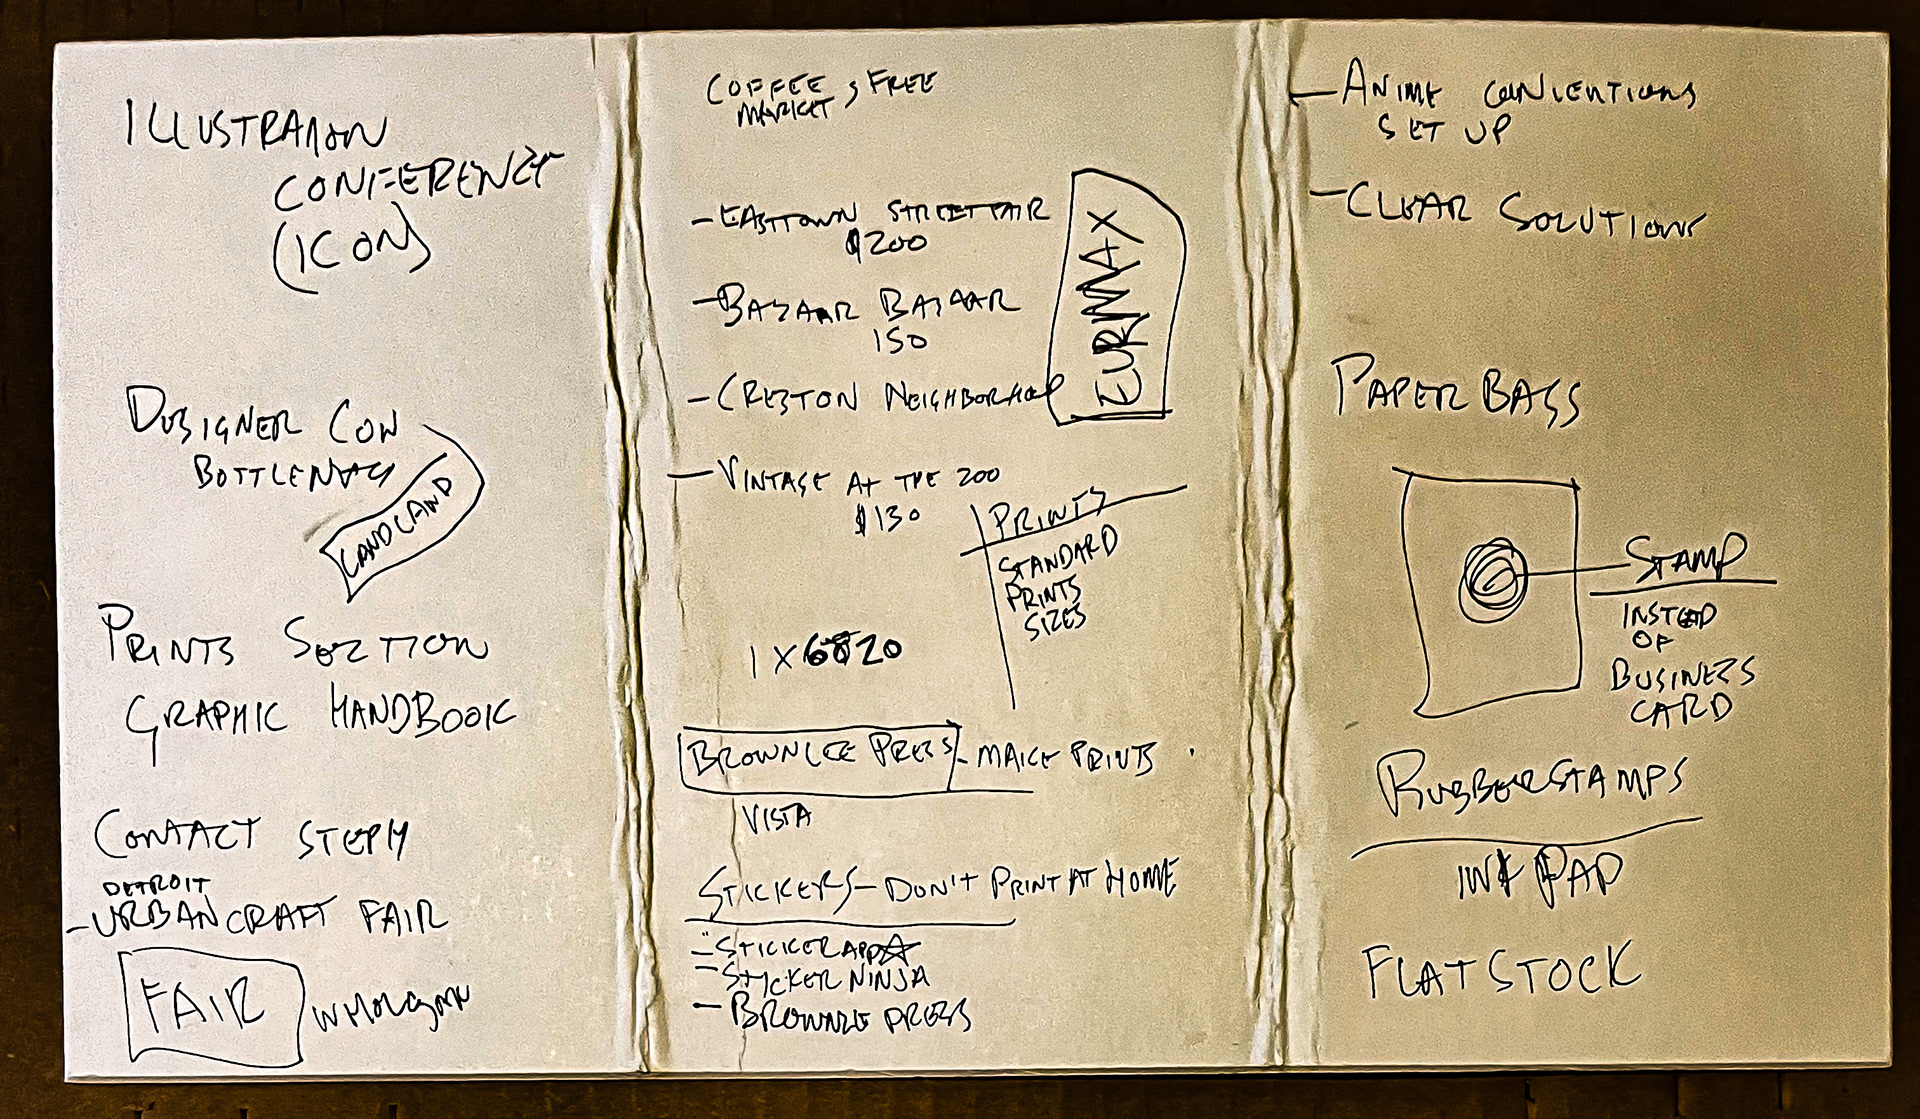 ILLUSTRATION
CONFERENCE
(ICON)
DESIGNER CON
BOTTLENECK
LANDLAND
PRINTS SECTION
GRAPHIC HANDBOOK
CONTACT STEPH
DETROIT
- URBAN CRAFT FAIR
FAIR
COFFEE & FREE
MARKET
- EASTTOWN STREET FAIR
$200
- BAZAAR BAZAAR
150
- CRESTON NEIGHBORHOOD
EURMAX
- VINTAGE AT THE 200
$130
PRINTS
STANDARD
PRINTS
SIZES
1 X 20
BROWNLEE PRESS - MAKE PRINTS
VISTA
STICKERS - DON'T PRINT AT HOME
- STICKER APP
- STICKER NINJA
- BROWNLEE PRESS
- ANIME CONVENTIONS
SET UP
- CLEAR SOLUTIONS
PAPER BAGS
STAMP
INSTEAD
OF
BUSINESS
CARD
RUBBERSTAMPS
INK PAD
FLATSTOCK